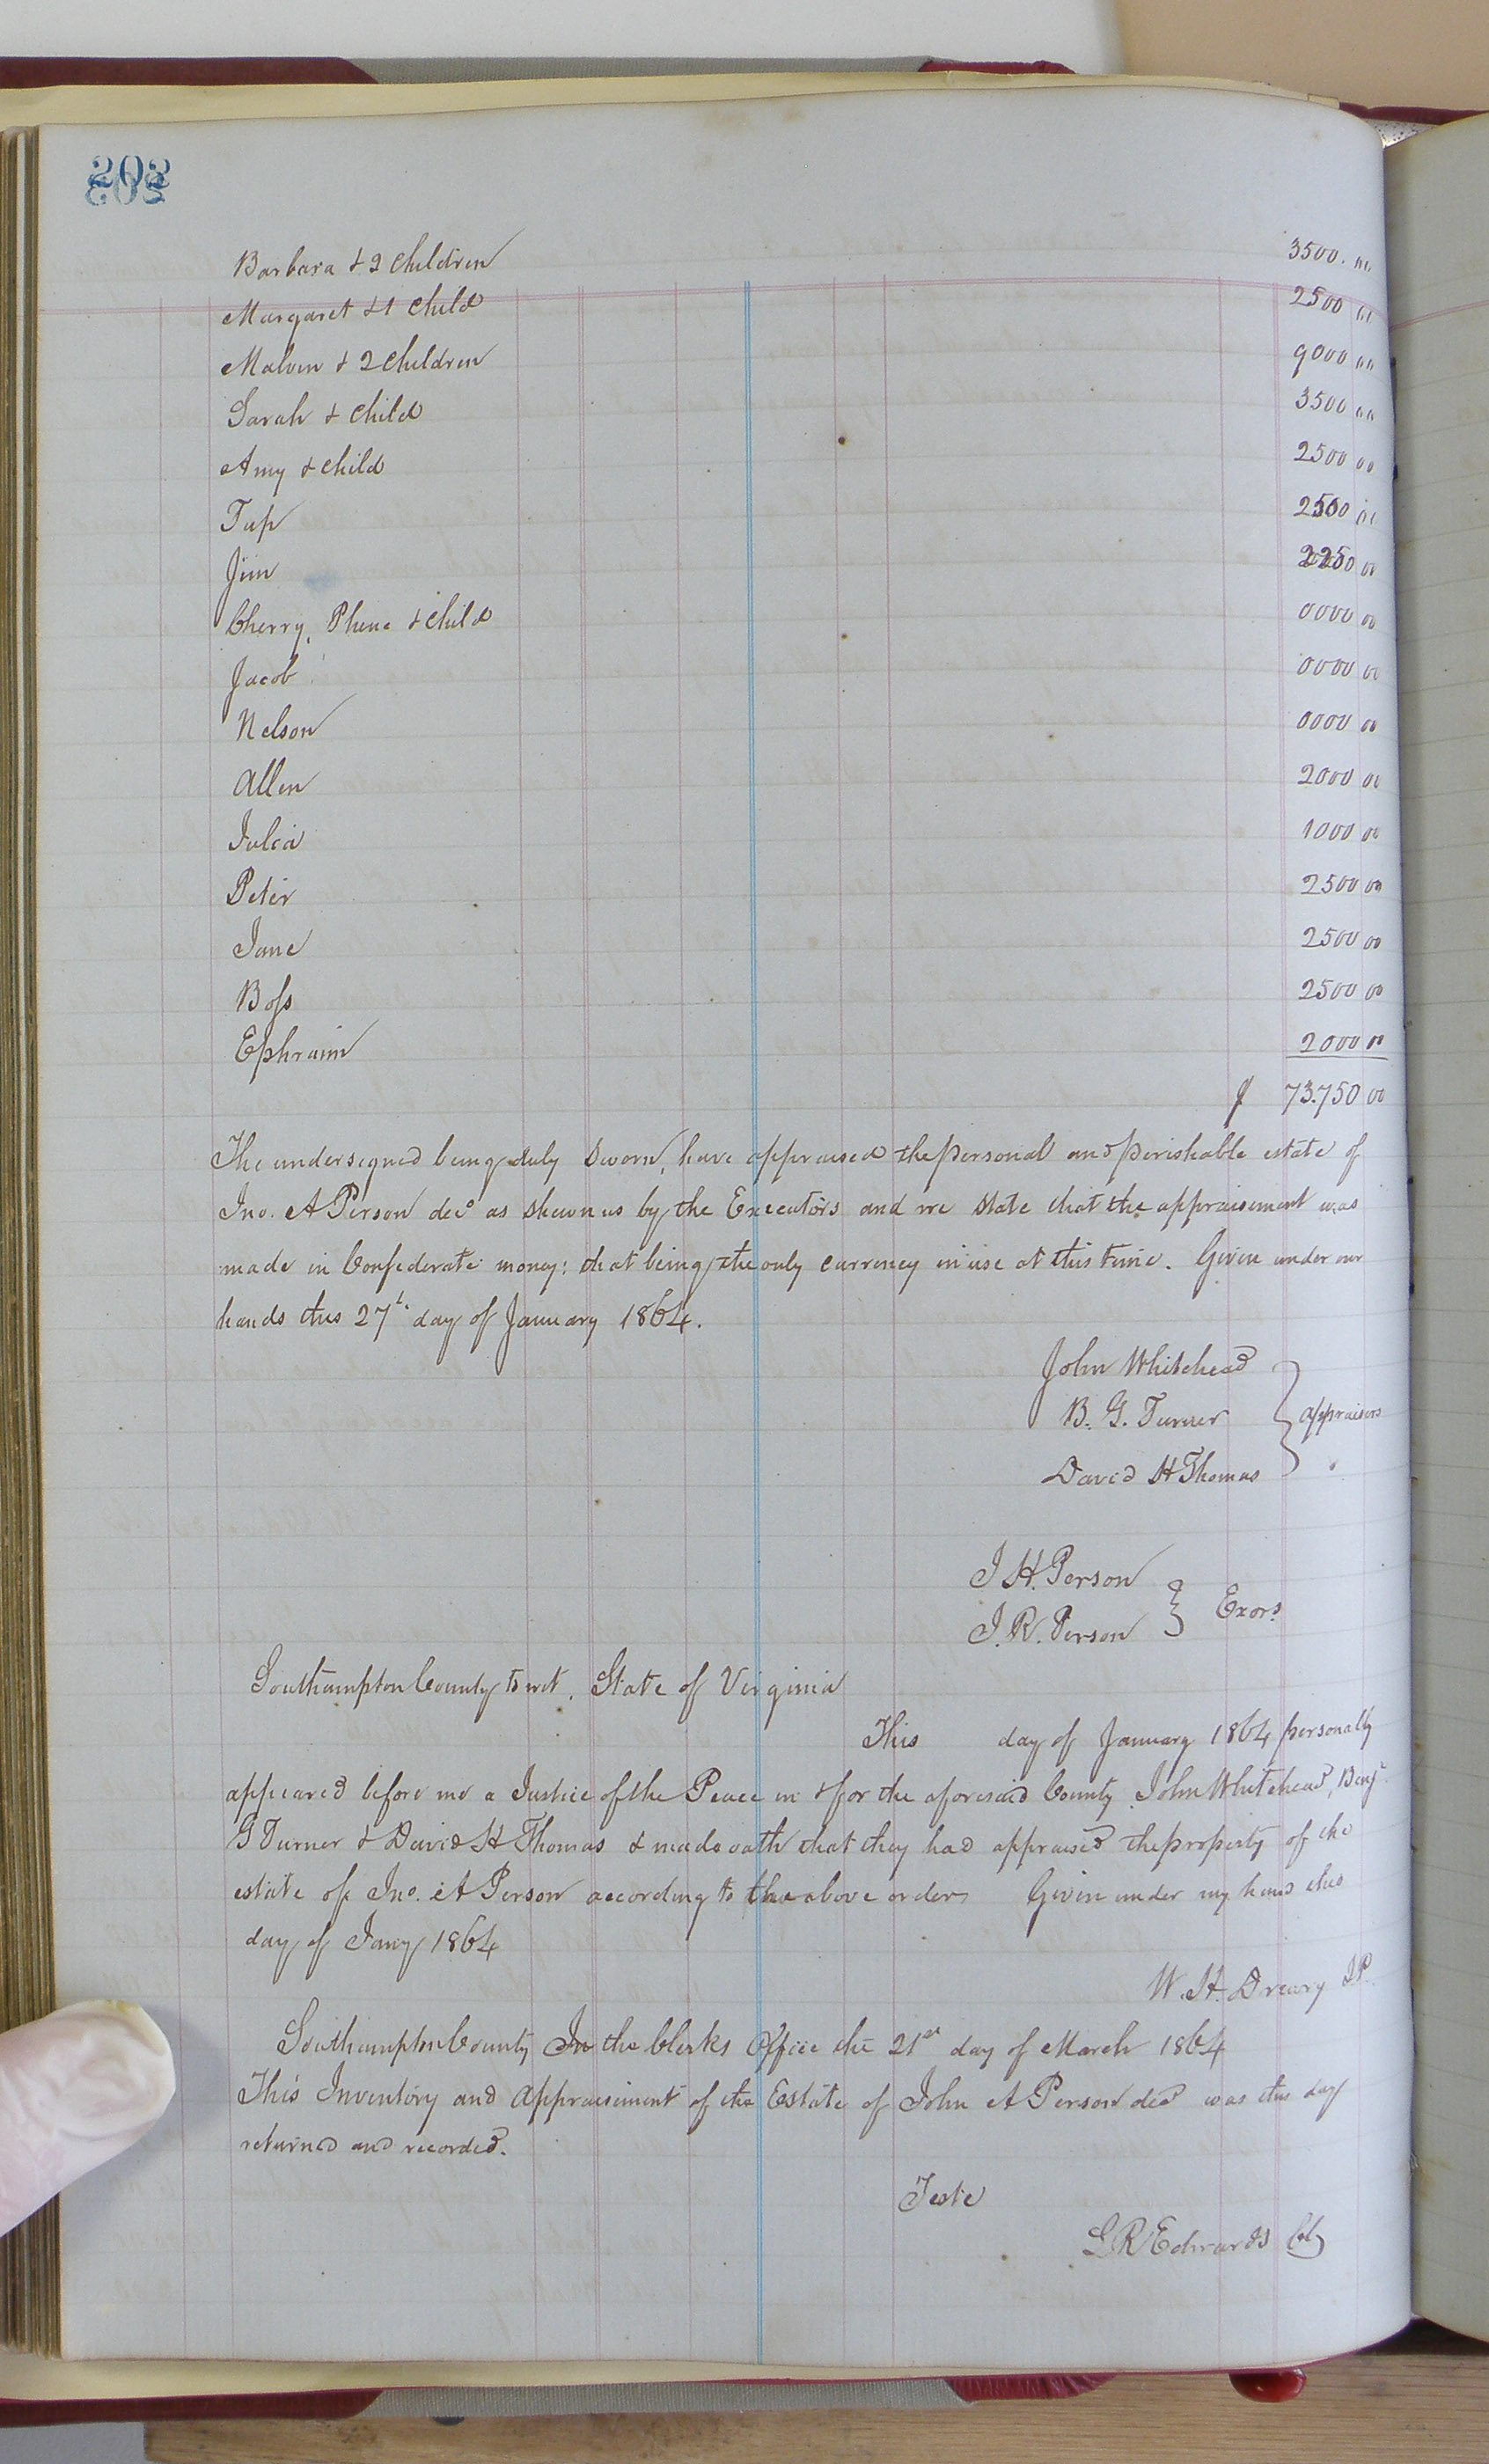 202
Barbara & 2 Children 3500.00
Margaret & 1 Child 2500 00
Malvin & 2 Children 9000 00
Sarah & Child 3500 00
Amy & Child 2500 00
Tup 2500 00
Jim 2250 00
Cherry, Phene & Child 0000 00
Jacob 0000 00
Nelson 0000 00
Allen 2000 00
Julia 1000 00
Peter 2500 00
Jane 2500 00
Boss 2500 00
Ephraim 2000 00
$ 73.750 00
The undersigned being duly sworn, have appraised the personal and perishable estate of
Jno. A Person decd as shewn us by the Executors and we state that the appraisement was
made in Confederate money: that being the only currency in use at this time. Given under our
hands this 27th day of January 1864.
John Whitehead
B. G. Turner } appraisers
David H Thomas "
J H. Person
J. R. Person } Exors
Southampton County to wit, State of Virginia
This day of January 1864 personally
appeared before me a Justice of the Peace in & for the aforesaid County John Whitehead, Benj
G Turner & David H Thomas & made oath that they had appraised the property of the
estate of Jno. A Person according to the above order Given under my hand this
day of Jany 1864
W. H. Drewry JP.
Southampton County In the Clerks Office the 21st day of March 1864
This Inventory and Appraisement of the Estate of John A Person decd was this day
returned and recorded.
Teste
L R Edwards Cl